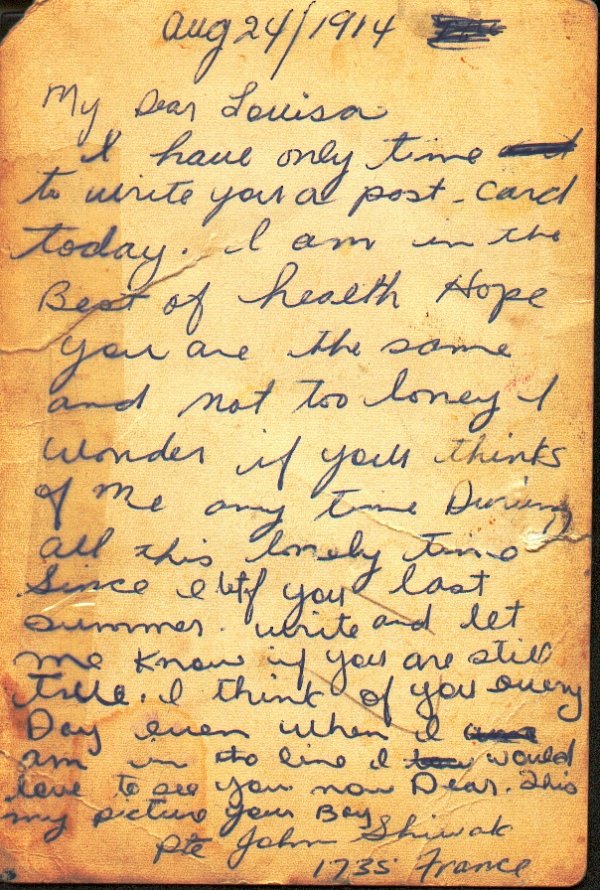 Aug 24/1914
My Dear Louisa
I have only time
to write you a post-card
today. I am in the
Best of health Hope
you are the same
and not too loney I
wonder if you thinks
of me any time During
all this lonely time
Since I left you last
summer. write and let
me know if you are still
true. I think of you every
Day even when I
am in the line I would
love to see you now Dear. This
my picture your Boy
Pte John Shiwak
1735 France